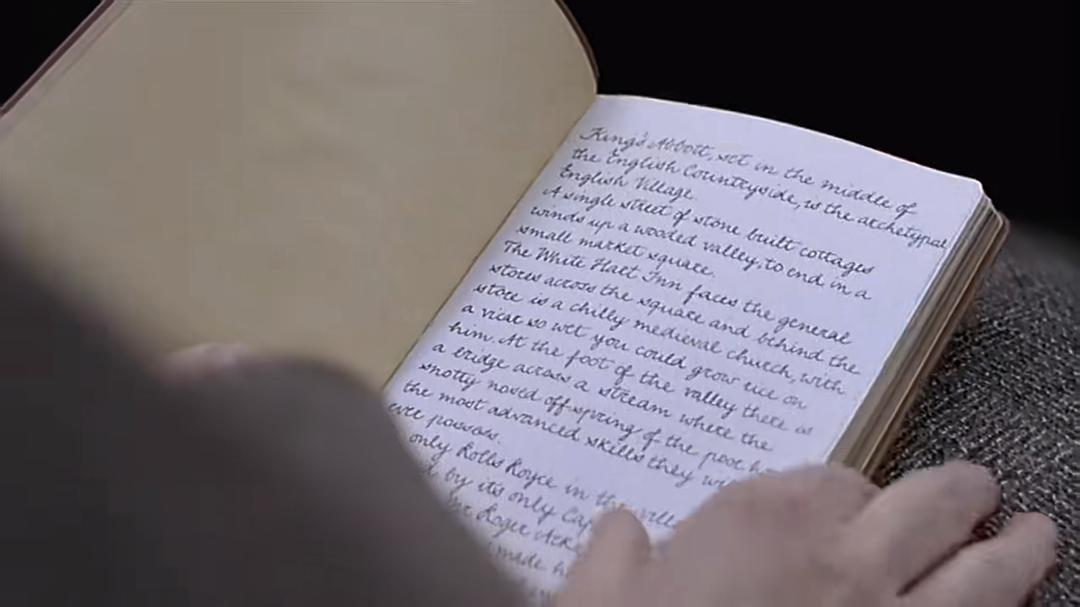 King's Abbott, set in the middle of
the English Countryside, is the archetypal
English Village.
A single street of stone built cottages
winds up a wooded valley, to end in a
small market square.
The White Hart Inn faces the general
stores across the square and behind the
store is a chilly medieval church, with
a vicar so wet you could grow rice on
him. At the foot of the valley there is
a bridge across a stream where the
snotty nosed off-spring of the poor
the most advanced skills they
ever possess.
only Rolls Royce in the
by its only
Roger
made